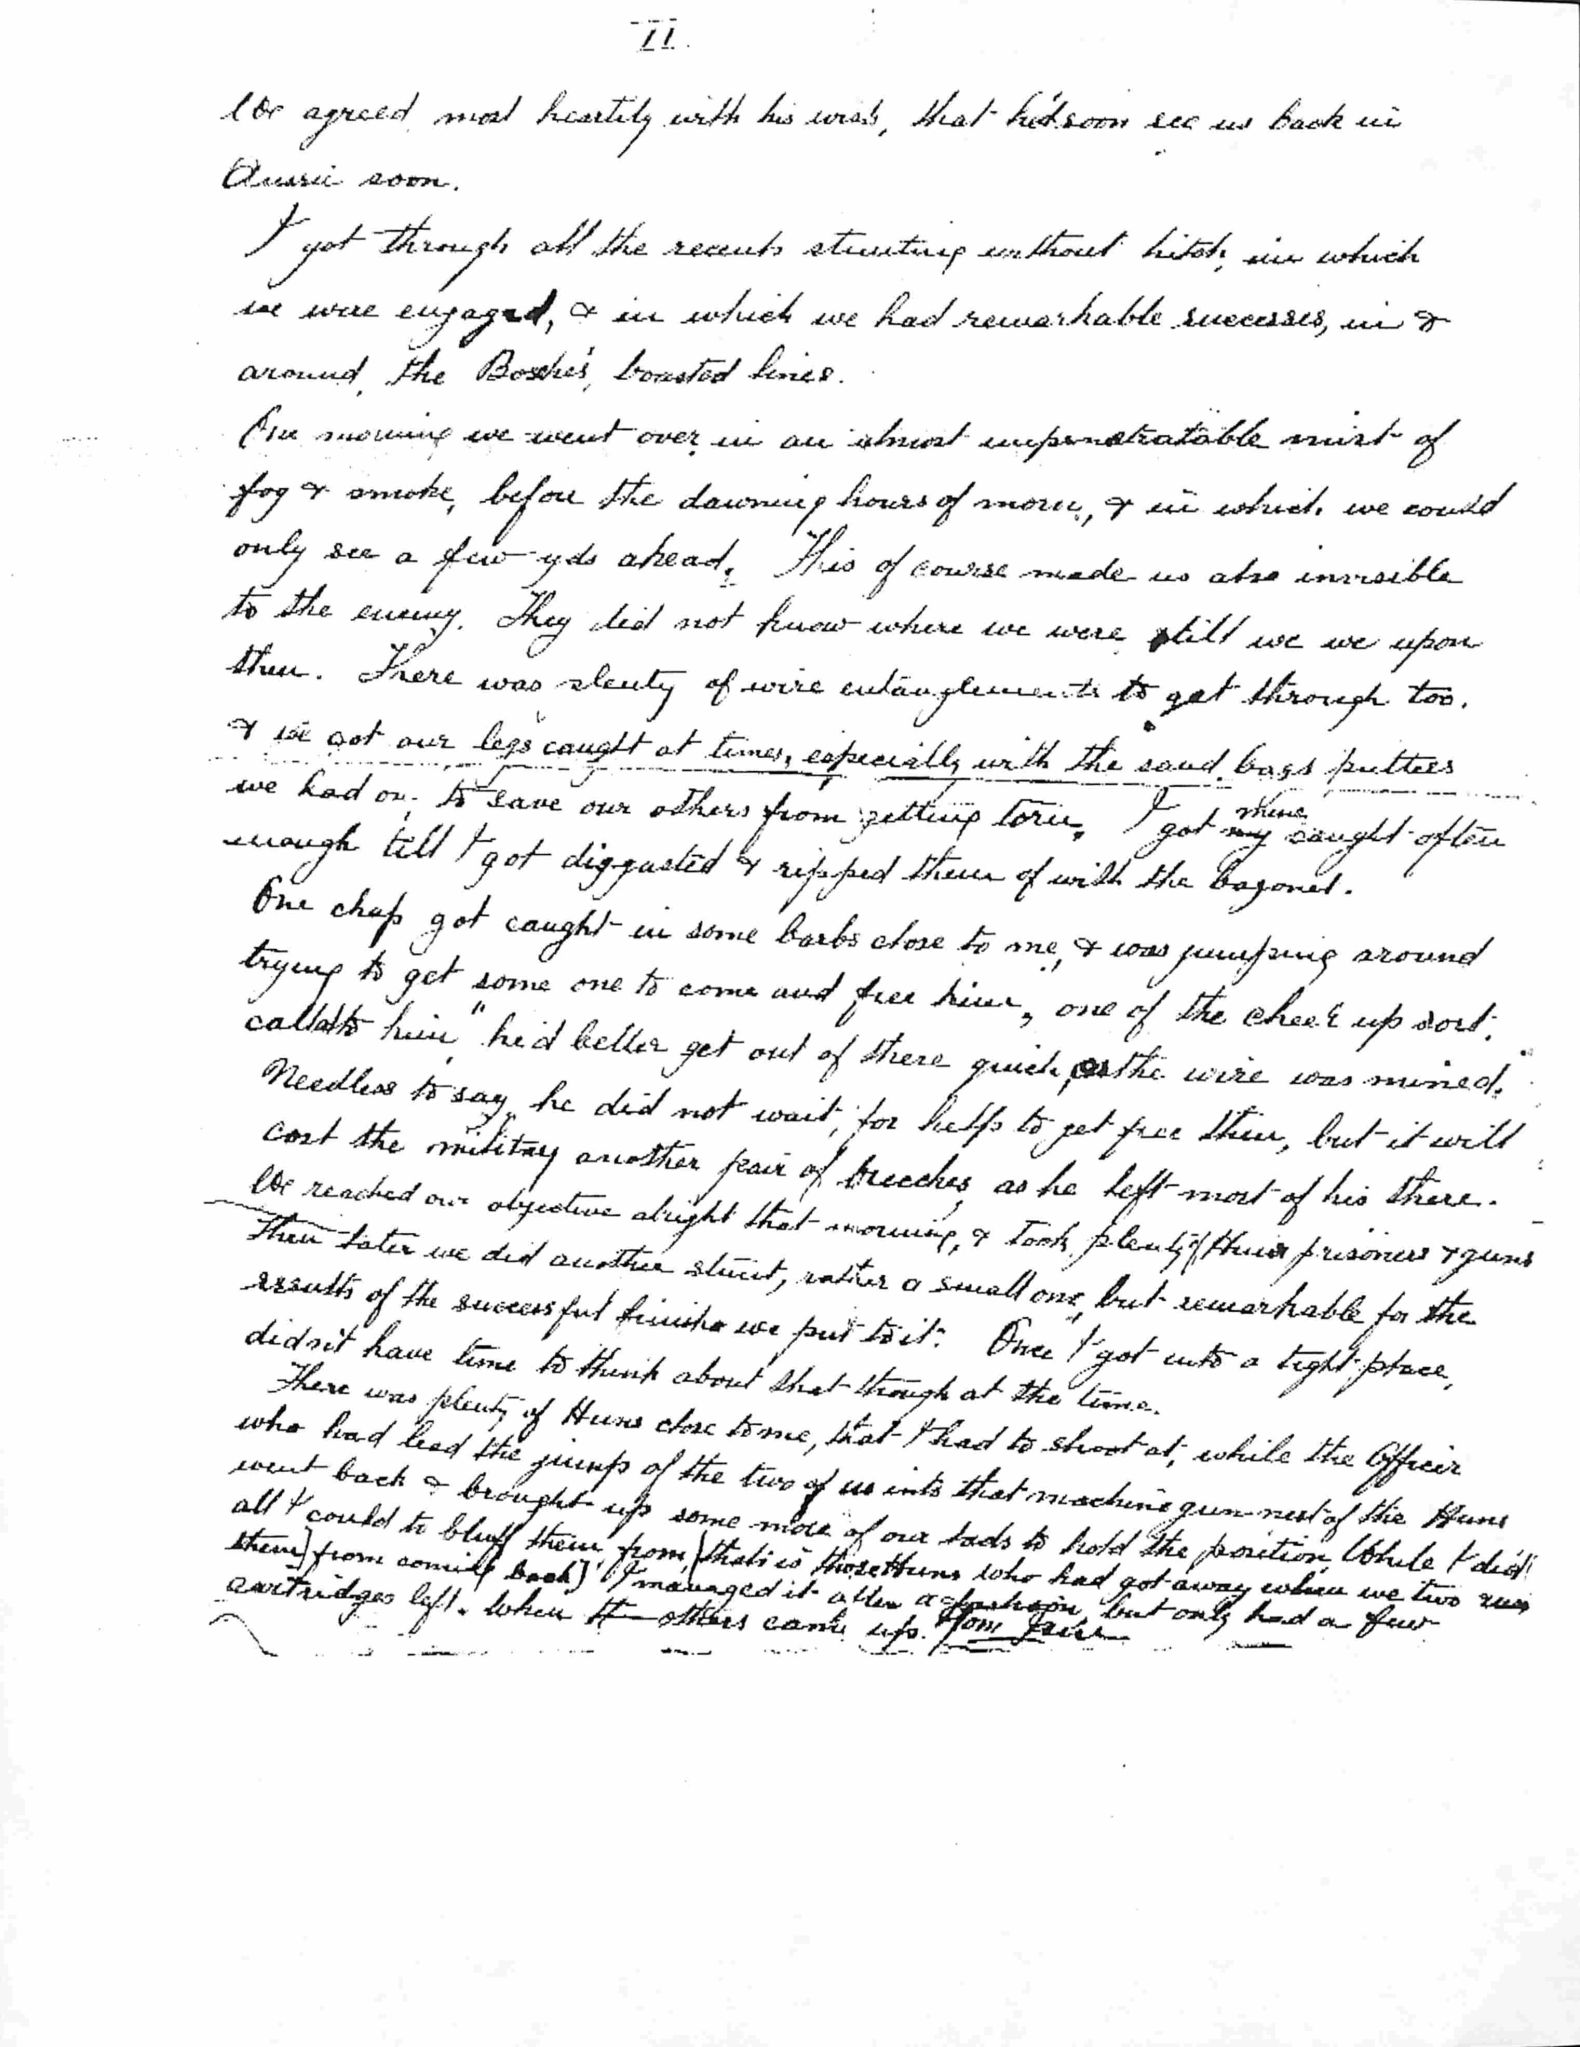 II.
We agreed most heartily with his wish, that he'd soon see us back in
Aussie soon.
I got through all the recent stunting without hitch, in which
we were engaged, & in which we had remarkable successes, in &
around, the Bosche's, boasted lines.
One morning we went over in an almost unpenetratable mist of
fog & smoke, before the dawning hours of morn, & in which we could
only see a few yds ahead. This of course made us also invisible
to the enemy. They did not know where we were till we we upon
them. There was plenty of wire entanglements to get through too.
& we got our legs caught at times, especially with the sand bags puttees
we had on, to save our others from getting torn. I got my mine caught often
enough till I got disgusted & ripped them of with the bayonet.
One chap got caught in some barbs close to me, & was jumping around
trying to get some one to come and free him, one of the cheer up sort.
called to him "he'd better get out of there quick, as the wire was mined.
Needless to say he did not wait, for help to get free then, but it will
cost the military another pair of breeches, as he left most of his there.
We reached our objective alright that morning, & took plenty of prisoners & guns
Then later we did another stunt, rather a small one, but remarkable for the
results of the successful finish we put to it. Once I got into a tight place,
didn't have time to think about that though at the time.
There was plenty of Huns close to me, that I had to shoot at, while the Officer
who had lead the jump of the two of us into that machine gun nest of the Huns
went back & brought up some more of our lads to hold the position, While I did
all I could to bluff them from, (that is those Huns who had got away when we two
them) from coming back) I managed it after a fashion, but only had a few
cartridges left. When the others came up.